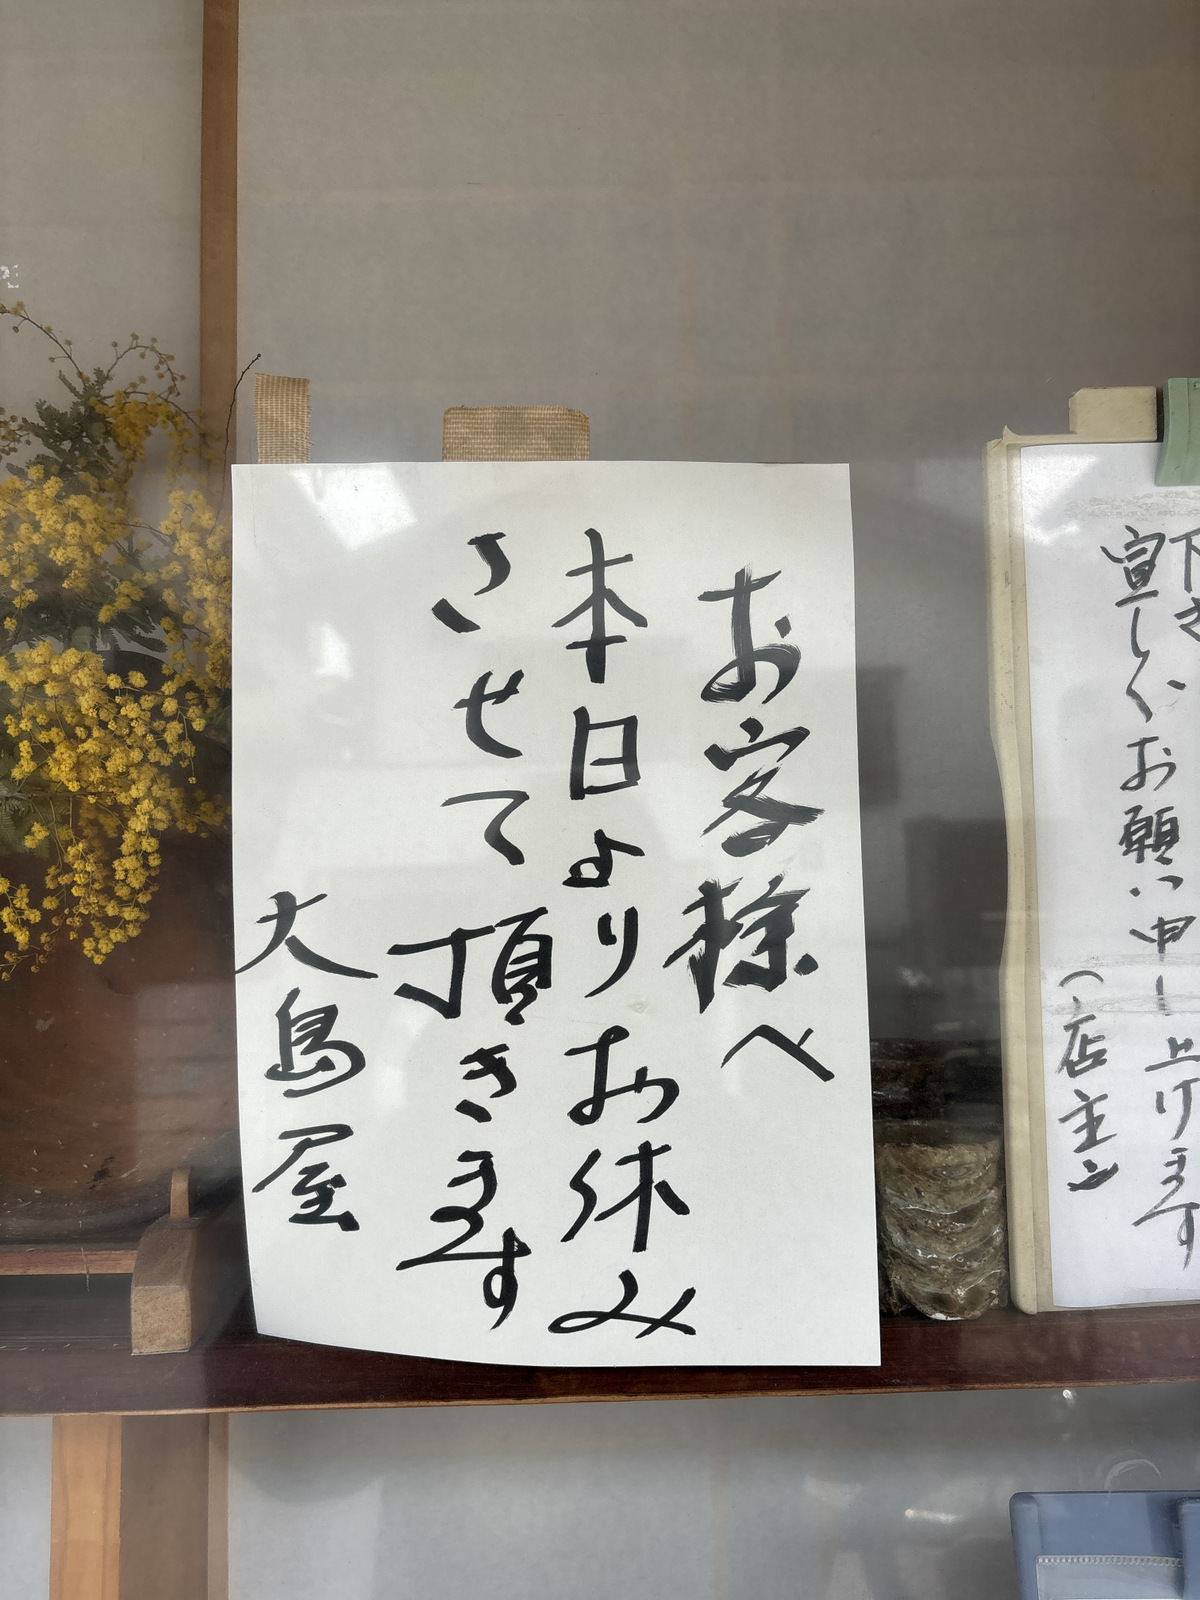 下さい
宜しくお願い申し上げます
(店主)
お客様へ
本日よりお休み
させて頂きます
大島屋